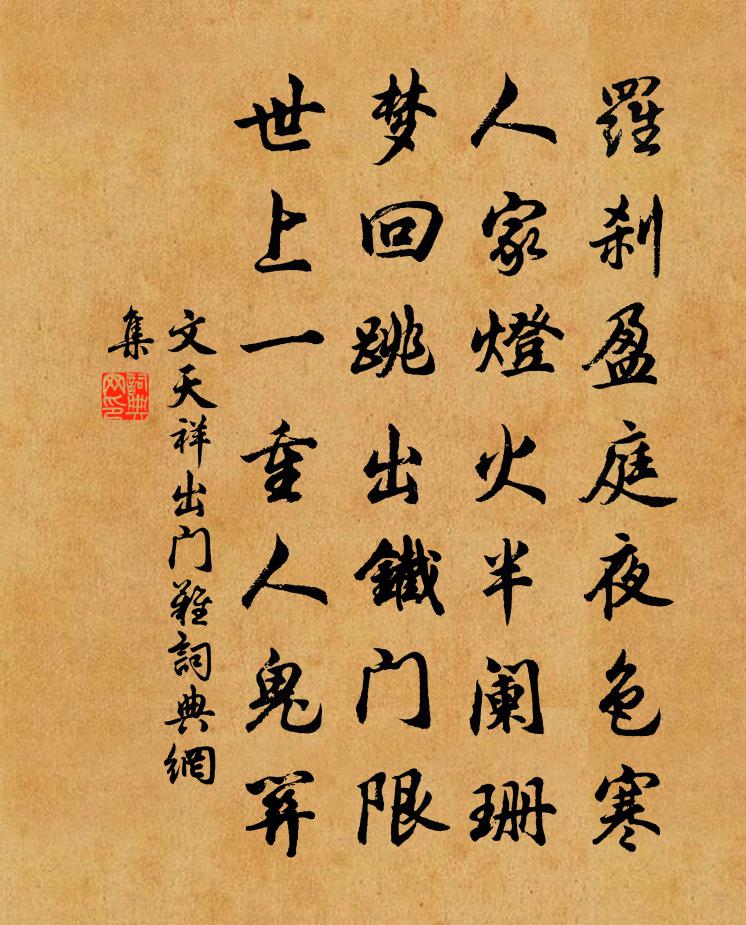 羅刹盈庭夜色寒
人家燈火半阑珊
梦回跳出鐵门限
世上一重人鬼關
文天祥出门難詞典網
集
詞典
网印